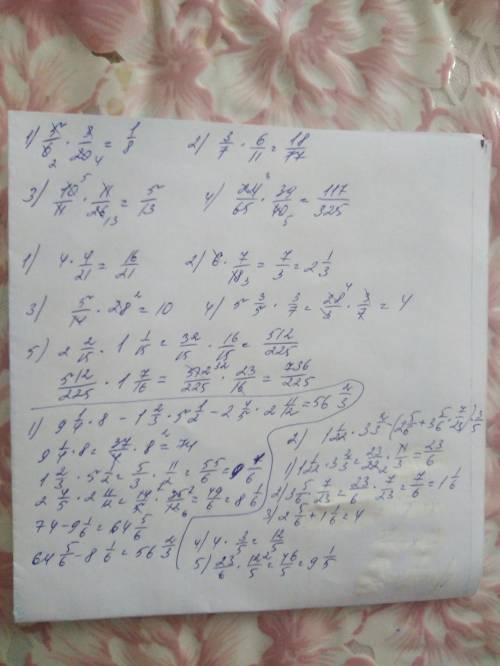 1) 5/6 · 3/20 = 1/8   2) 3/7 · 6/11 = 18/77
3) 10/11 · 11/26 = 5/13   4) 24/65 · 39/40 = 117/325
1) 4 · 4/21 = 16/21   2) 6 · 7/18 = 7/3 = 2 1/3
3) 5/14 · 28 = 10   4) 5 3/5 · 3/7 = 28/5 · 3/7 = 4
5) 2 2/15 · 1 1/15 = 32/15 · 16/15 = 512/225
512/225 · 1 7/16 = 512/225 · 23/16 = 736/225
1) 9 1/4 · 8 - 1 2/3 · 5 1/2 - 2 4/5 · 2 11/12 = 56 2/3
9 1/4 · 8 = 37/4 · 8 = 74
1 2/3 · 5 1/2 = 5/3 · 11/2 = 55/6 = 9 1/6
2 4/5 · 2 11/12 = 14/5 · 35/12 = 49/6 = 8 1/6
74 - 9 1/6 = 64 5/6
64 5/6 - 8 1/6 = 56 2/3
2) 1 1/22 · 3 2/3 - (2 5/6 + 3 5/6 · 7/23) 3/5
1) 1 1/22 · 3 2/3 = 23/22 · 11/3 = 23/6
2) 3 5/6 · 7/23 = 23/6 · 7/23 = 7/6 = 1 1/6
3) 2 5/6 + 1 1/6 = 4
4) 4 · 3/5 = 12/5
5) 23/6 · 12/5 = 46/5 = 9 1/5